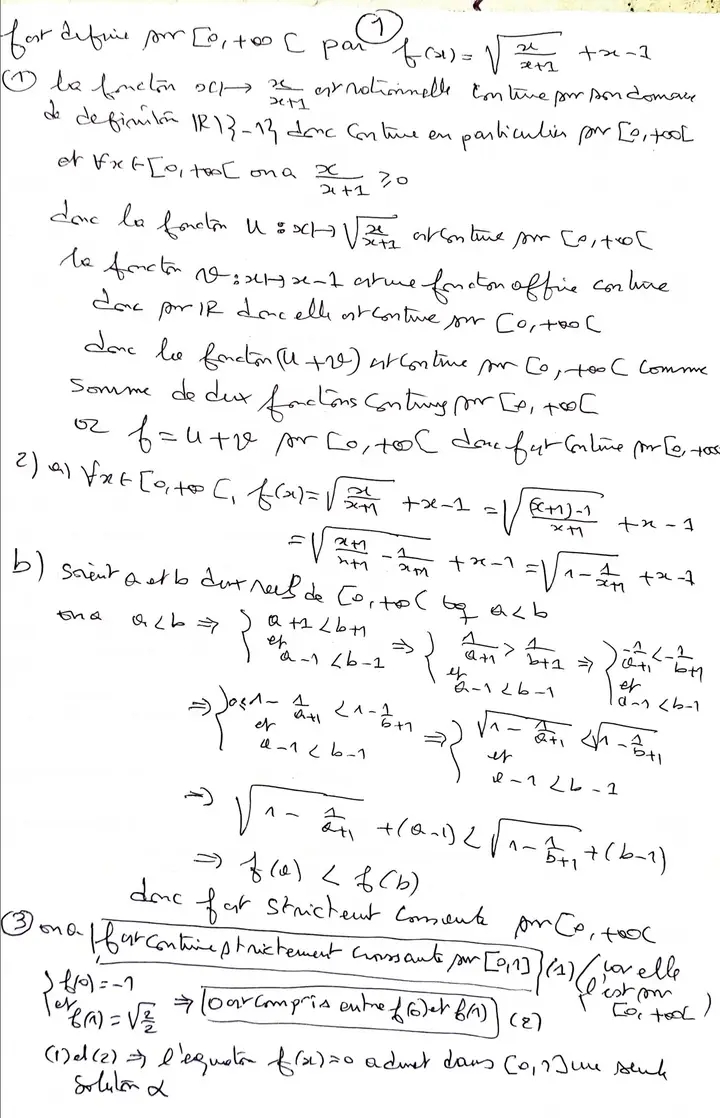 1
f est définie sur [0,+∞[ par f(x) = √(x/(x+1)) + x-1
① la fonction x ↦ x/(x+1) est rationnelle continue sur son domaine
de définition ℝ\{-1} donc continue en particulier sur [0,+∞[
et ∀x∈[0,+∞[ on a x/(x+1) ≥ 0
donc la fonction u : x ↦ √(x/(x+1)) est continue sur [0,+∞[
la fonction v : x ↦ x-1 est une fonction affine continue
donc sur ℝ donc elle est continue sur [0,+∞[
donc la fonction (u+v) est continue sur [0,+∞[ comme
somme de deux fonctions continues sur [0,+∞[
or f = u+v sur [0,+∞[ donc f est continue sur [0,+∞
2) a) ∀x∈[0,+∞[, f(x) = √(x/(x+1)) + x-1 = √(((x+1)-1)/(x+1)) + x-1
= √((x+1)/(x+1) - 1/(x+1)) + x-1 = √(1 - 1/(x+1)) + x-1
b) soient a et b deux réels de [0,+∞[ tq a<b
on a a<b ⇒ { a+1<b+1 et a-1<b-1 ⇒ { 1/(a+1) > 1/(b+1) et a-1<b-1 ⇒ { -1/(a+1) < -1/(b+1) et a-1<b-1
⇒ { 0≤1 - 1/(a+1) < 1 - 1/(b+1) et a-1<b-1 ⇒ { √(1 - 1/(a+1)) < √(1 - 1/(b+1)) et a-1<b-1
⇒ √(1 - 1/(a+1)) + (a-1) < √(1 - 1/(b+1)) + (b-1)
⇒ f(a) < f(b)
donc f est strictement croissante sur [0,+∞[
③ on a f est continue strictement croissante sur [0,1] (1) (car elle l'est sur [0,+∞[)
{ f(0) = -1 et f(1) = √2/2 ⇒ 0 est compris entre f(0) et f(1) (2)
(1) et (2) ⇒ l'equation f(x)=0 admet dans [0,1] une seule
solution α